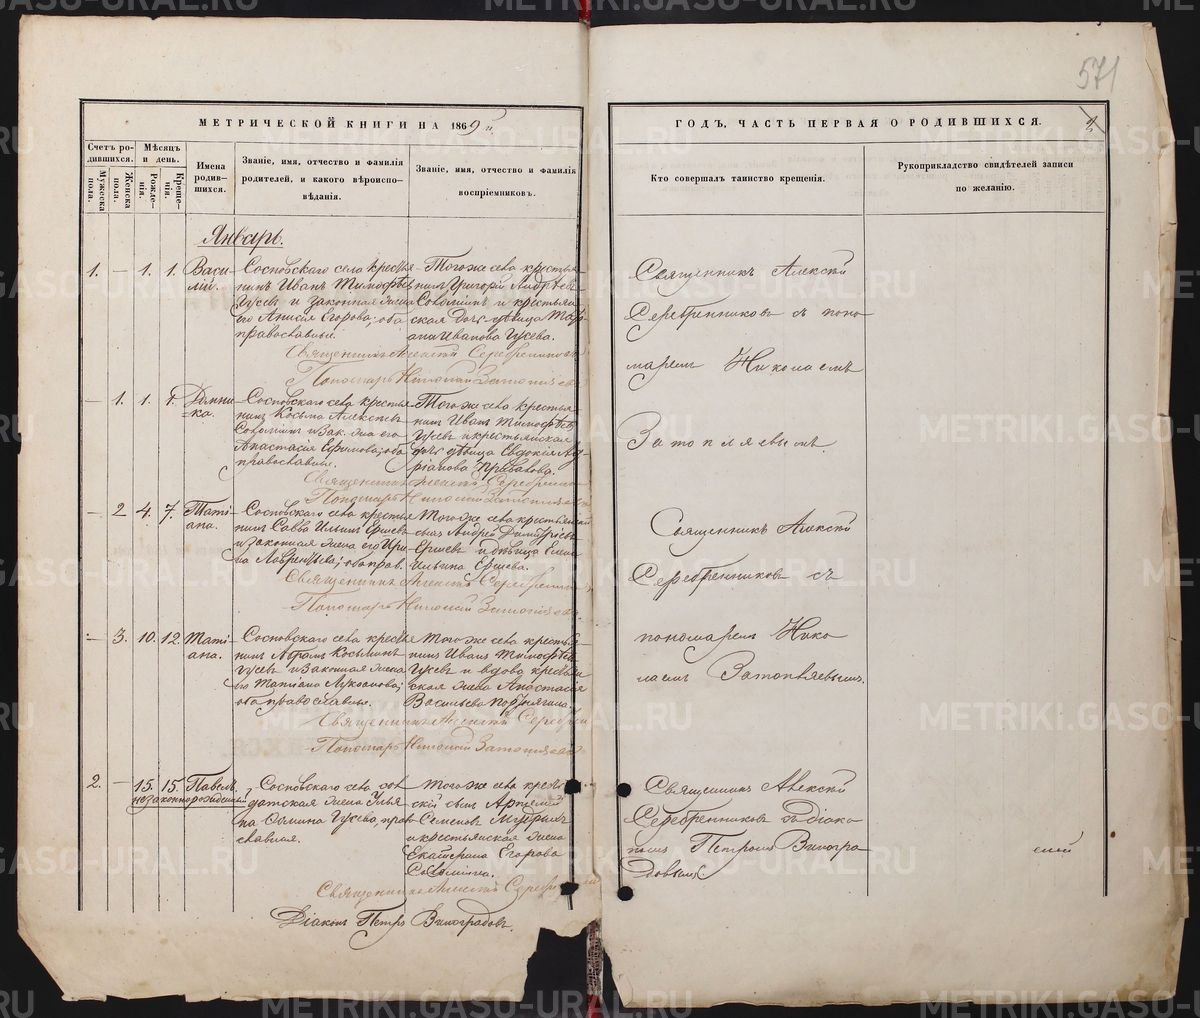 571
МЕТРИЧЕСКОЙ КНИГИ НА 1869 й
ГОДЪ, ЧАСТЬ ПЕРВАЯ О РОДИВШИХСЯ.
2
Счетъ ро-
дившихся.
Мужеска
пола.
Женска
пола.
Мѣсяцъ
и день.
Рожде-
нія.
Креще-
нія.
Имена
родив-
шихся.
Званіе, имя, отчество и фамилія
родителей, и какого вѣроиспо-
вѣданія.
Званіе, имя, отчество и фамилія
воспріемниковъ.
Кто совершалъ таинство крещенія.
Рукоприкладство свидѣтелей записи
по желанію.
Январь.
1. — 1. 1. Васи-
лій.
Сосновскаго села крестья-
нинъ Иванъ Тимофѣевъ
Гусевъ и законная жена
его Анисія Егорова; оба
православные.
Тогоже села крестья-
нинъ Григорій Андрѣевъ
Соломинъ и крестьян-
ская дочь дѣвица
Иванова Гусева.
Священникъ Алексій Серебренниковъ
Пономарь Николай Затопляевъ
Священникъ Алексій
Серебренниковъ съ поно-
маремъ Николаемъ
Затопляевымъ
— 1. 1. Домни-
ка.
Сосновскаго села крестья-
нинъ Косьма Алексѣевъ
Соломинъ и зак. жена его
Анастасія Ефимова; оба
православные.
Тогоже села крестья-
нинъ Иванъ Тимофѣевъ
Гусевъ и крестьянская
дочь дѣвица Евдокія Ад-
ріанова Привалова.
Священникъ Алексій Серебренниковъ
Пономарь Николай Затопляевъ
— 2 4. 7. Таті-
ана.
Сосновскаго села крестья-
нинъ Савва Ильинъ Ершевъ
и законная жена его Ири-
на Лаврентьева; оба прав.
Тогоже села крестьянскій
сынъ Андрей Димитріевъ
Ершевъ и дѣвица Елена
Ильина Ершева.
Священникъ Алексій Серебренниковъ
Пономарь Николай Затопляевъ
Священникъ Алексій
Серебренниковъ съ
пономаремъ Нико-
лаемъ Затопляевымъ.
— 3. 10. 12. Таті-
ана.
Сосновскаго села крестья-
нинъ Абрамъ Косьминъ
Гусевъ и законная жена
его Татіана Лукоянова;
оба православные.
Тогоже села крестья-
нинъ Иванъ Тимофѣевъ
Гусевъ и вдова крестьян-
ская жена Анастасія
Васильева Портнягина.
Священникъ Алексій Серебренниковъ
Пономарь Николай Затопляевъ
2. — 15. 15. Павелъ,
незаконнорожденный
Сосновскаго села сол-
датская жена Улья-
на Гусева, прав-
славная.
Тогоже села крестьян-
скій сынъ Артемій
Семеновъ Мудрыхъ
и крестьянская жена
Екатерина Егорова
Соломина.
Священникъ Алексій Серебренниковъ
Діаконъ Петръ Виноградовъ.
Священникъ Алексій
Серебренниковъ съ діако-
номъ Петромъ Виногра-
довымъ.
METRIKI.GASO-URAL.RU